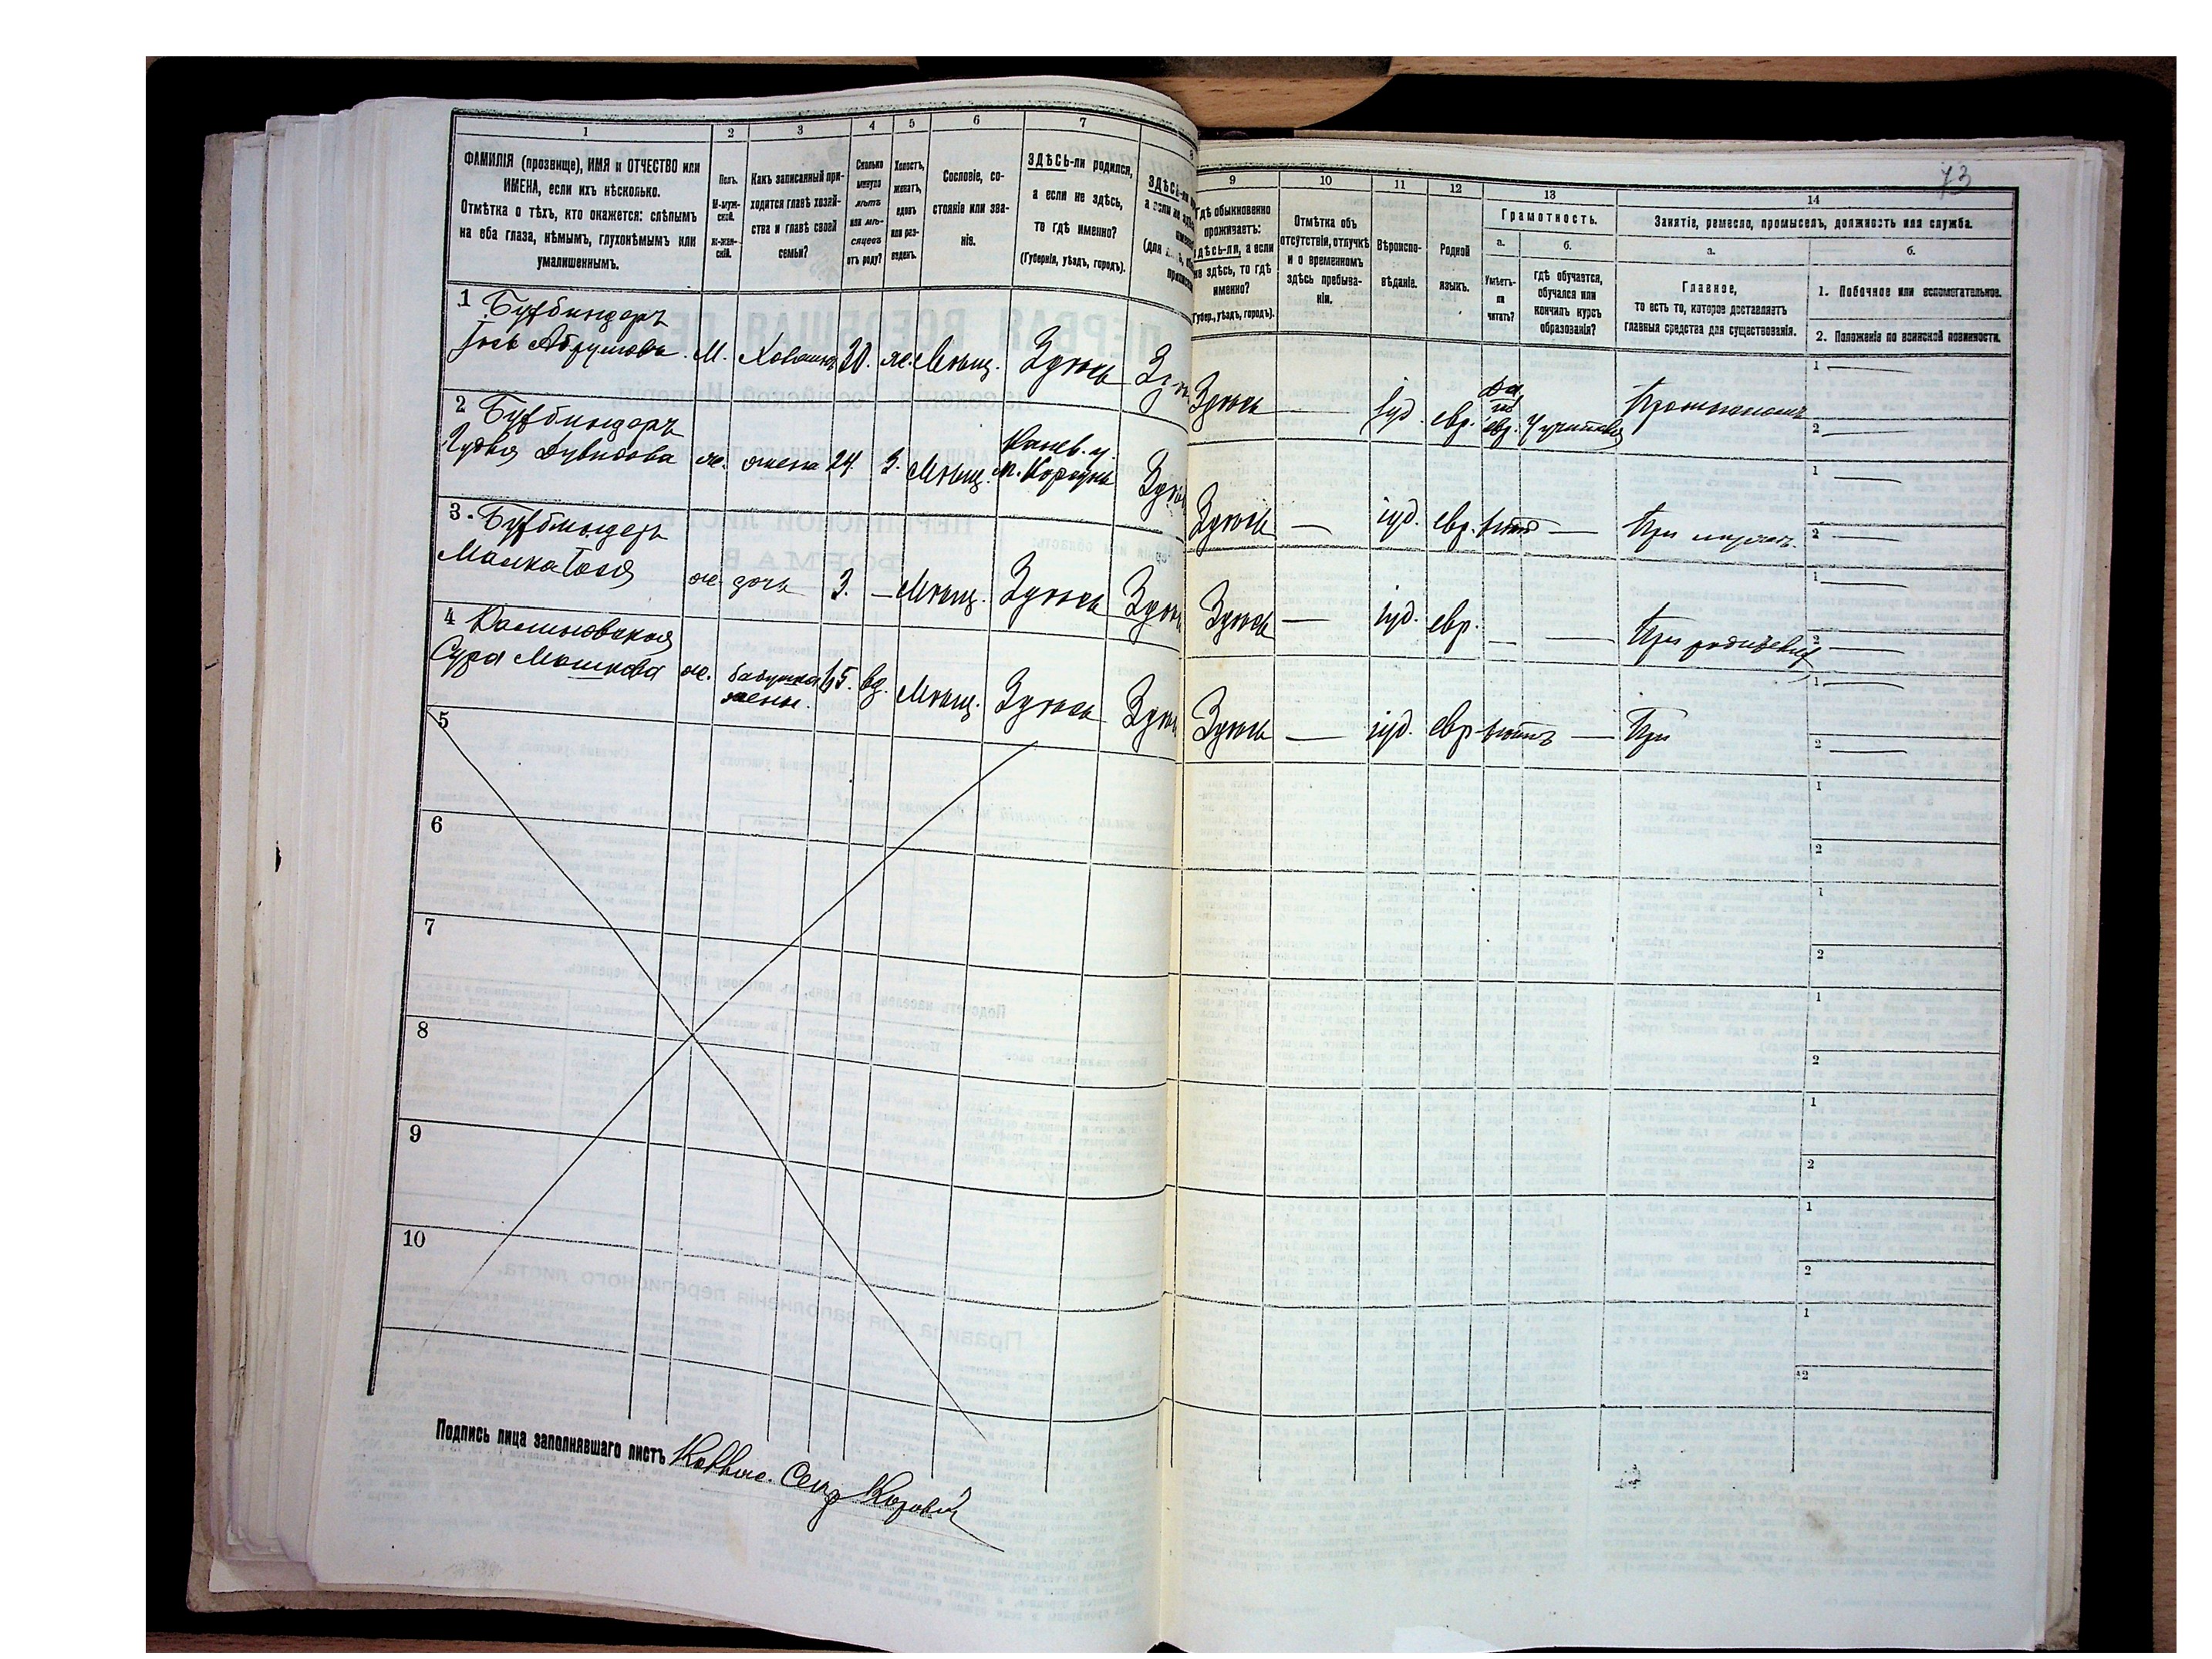 73
1
2
3
4
5
6
7
8
ФАМИЛІЯ (прозвище), ИМЯ и ОТЧЕСТВО или
ИМЕНА, если ихъ нѣсколько.
Отмѣтка о тѣхъ, кто окажется: слѣпымъ
на оба глаза, нѣмымъ, глухонѣмымъ или
умалишеннымъ.
Полъ.
М-муж-
ской.
ж-жен-
скій.
Какъ записанный при-
ходится главѣ хозяй-
ства и главѣ своей
семьи?
Сколько
минуло
лѣтъ
или мѣ-
сяцевъ
отъ роду?
Холостъ,
женатъ,
вдовъ
или раз-
веденъ.
Сословіе, со-
стояніе или зва-
ніе.
ЗДѢСЬ-ли родился,
а если не здѣсь,
то гдѣ именно?
(Губернія, уѣздъ, городъ).
9
10
11
12
13
14
Гдѣ обыкновенно
проживаетъ:
здѣсь-ли, а если
не здѣсь, то гдѣ
именно?
(Губер., уѣздъ, городъ).
Отмѣтка объ
отсутствіи, отлучкѣ
и о временномъ
здѣсь пребыва-
ніи.
Вѣроиспо-
вѣданіе.
Родной
языкъ.
Грамотность.
а.
б.
Умѣетъ-
ли
читать?
гдѣ обучается,
обучался или
кончилъ курсъ
образованія?
Занятіе, ремесло, промыселъ, должность или служба.
а.
б.
Главное,
то есть то, которое доставляетъ
главныя средства для существованія.
1. Побочное или вспомогательное.
2. Положеніе по воинской повинности.
1 Буфбиндеръ
М. Хозяинъ ж. Мѣщ. Здѣсь
Здѣсь — іуд. евр. Да евр. У учителя
1 —
2 —
2 Буфбиндеръ
ж. жена 24 З. Мѣщ. Канев. у. м. Корсунь
Здѣсь — іуд. евр. нѣтъ — При мужѣ.
1 —
2 —
3 Буфбиндеръ
ж. дочь 3. — Мѣщ. Здѣсь
Здѣсь — іуд. евр. — — При родителяхъ
1 —
2 —
4
Сура Мошкова ж. бабушка жены. 65. вд. Мѣщ. Здѣсь
Здѣсь — іуд. евр нѣтъ — При
1 —
2 —
5
1
2
6
1
2
7
1
2
8
1
2
9
1
2
10
1
2
Подпись лица заполнявшаго листъ